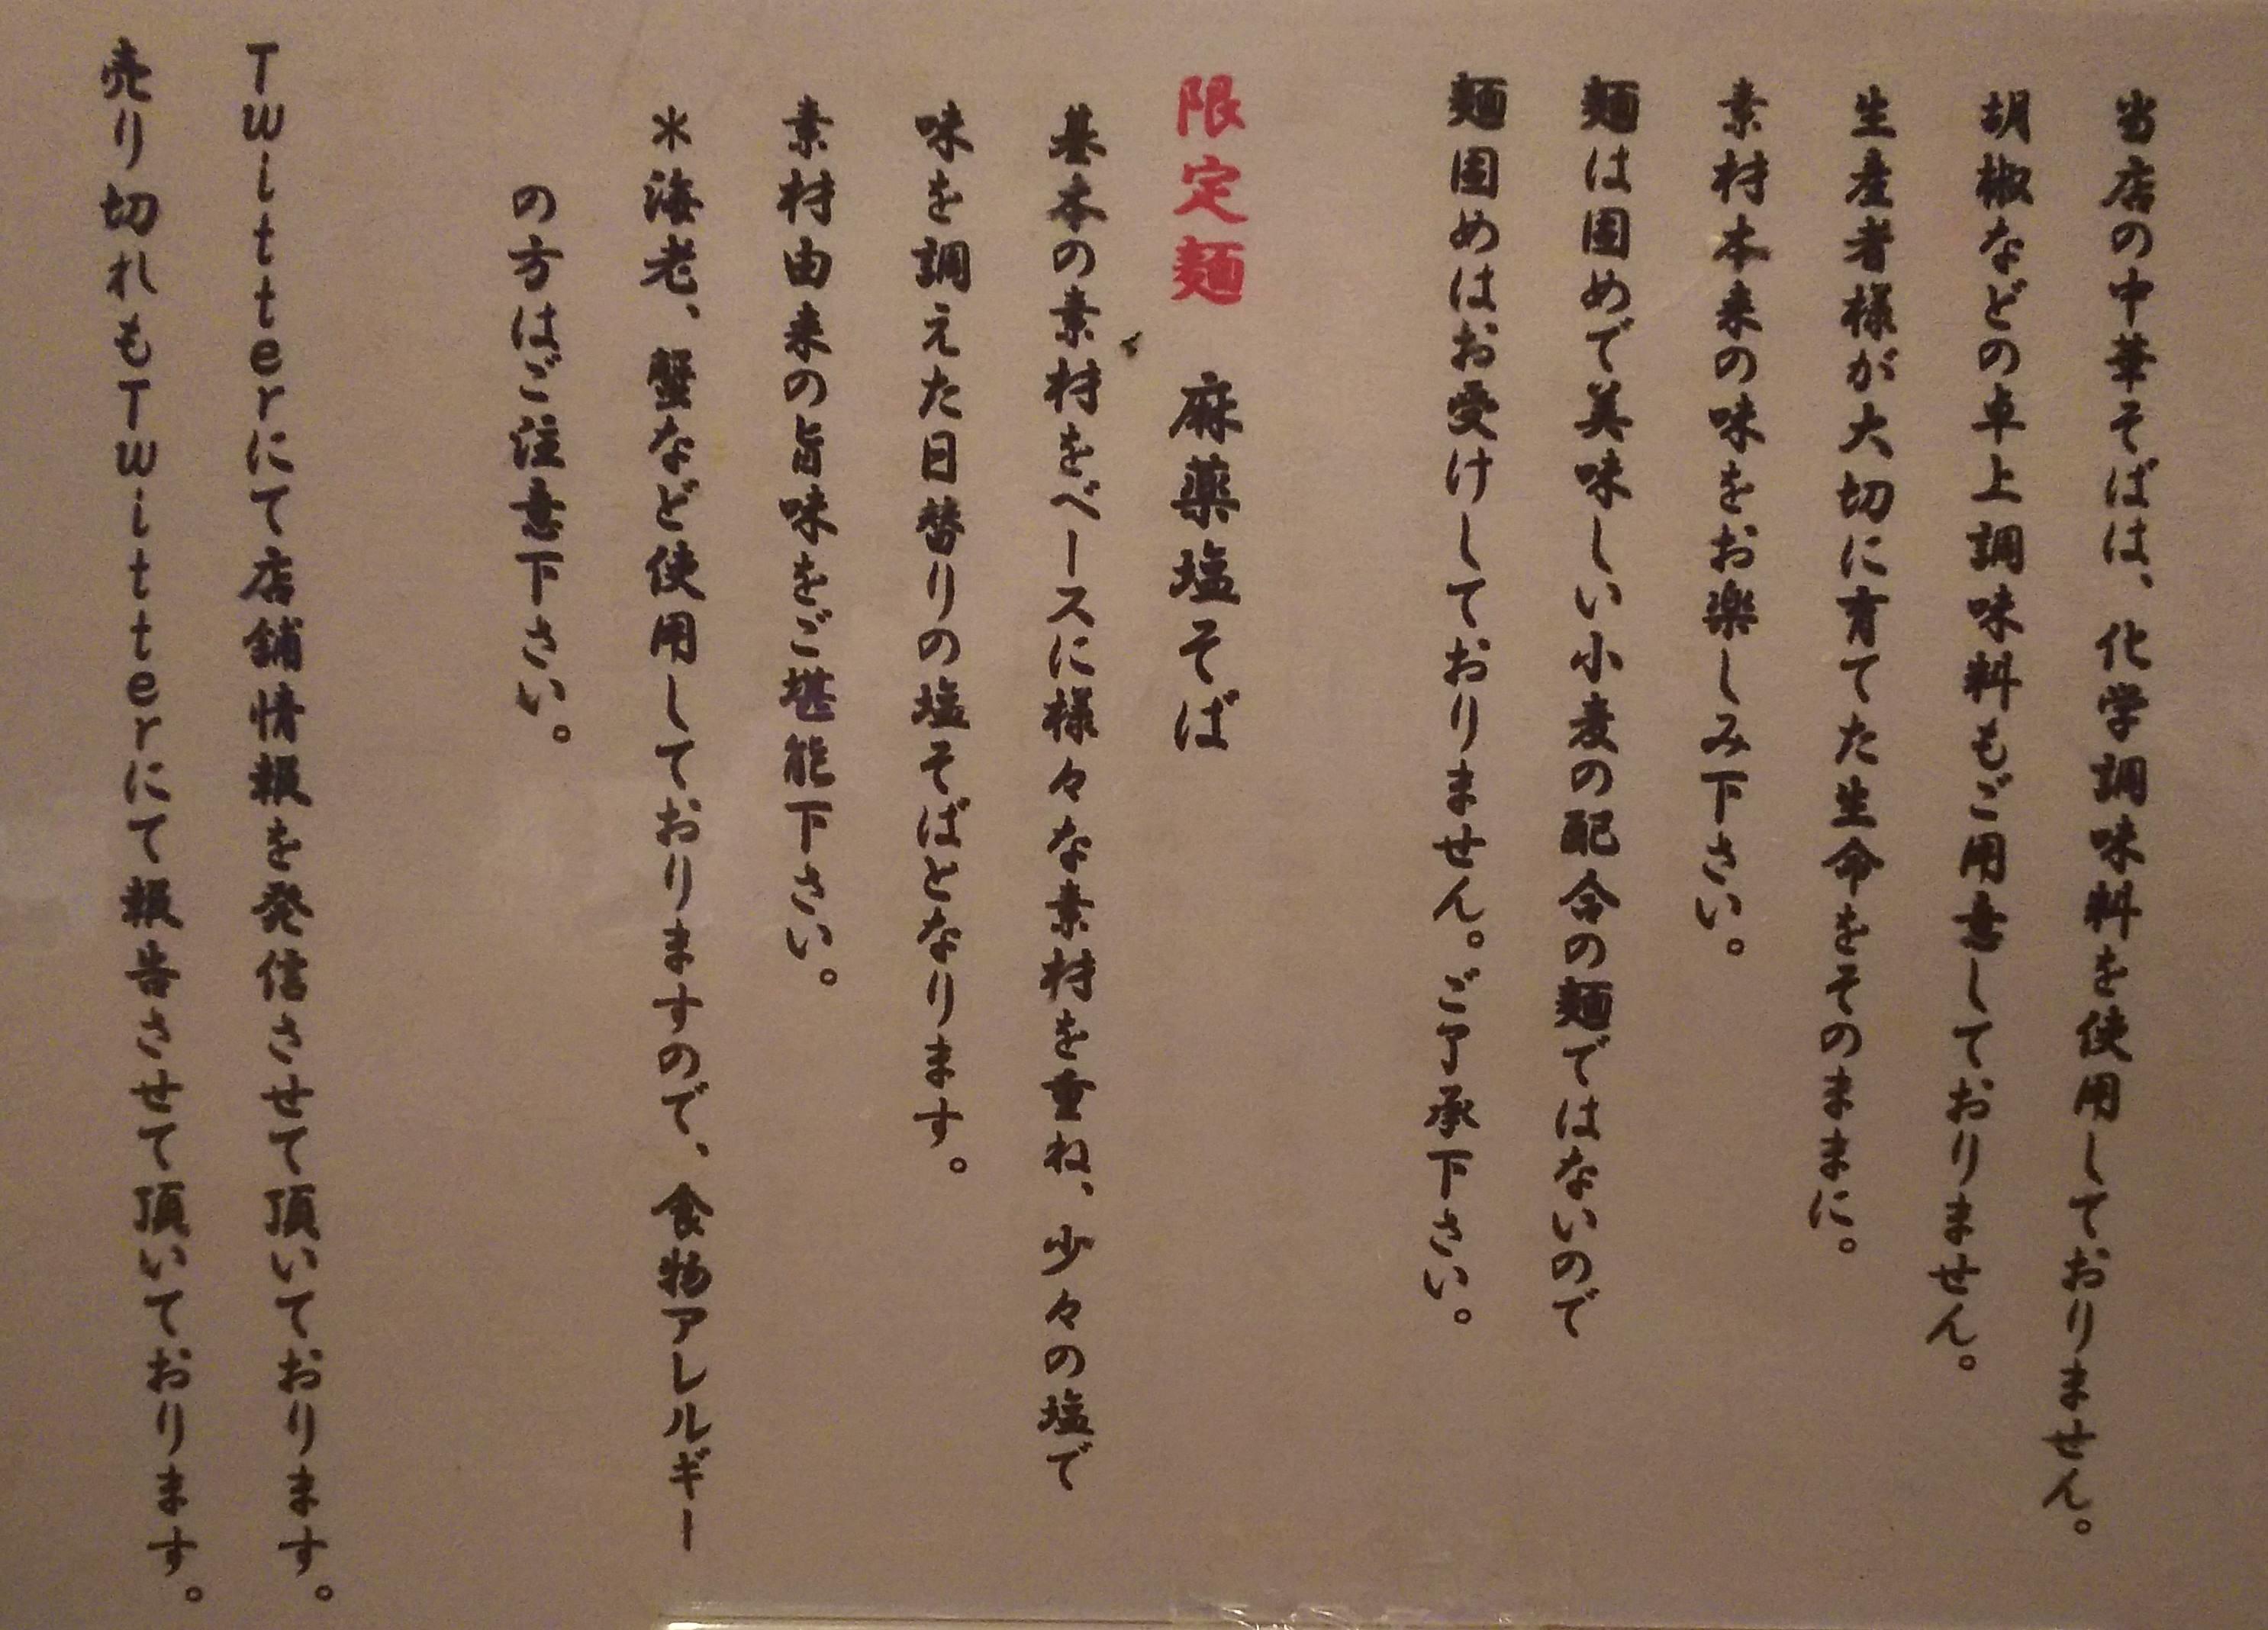 当店の中華そばは、化学調味料を使用しておりません。
胡椒などの卓上調味料もご用意しておりません。
生産者様が大切に育てた生命をそのままに。
素材本来の味をお楽しみ下さい。
麺は固めで美味しい小麦の配合の麺ではないので
麺固めはお受けしておりません。ご了承下さい。
限定麺 麻薬塩そば
基本の素材をベースに様々な素材を重ね、少々の塩で
味を調えた日替りの塩そばとなります。
素材由来の旨味をご堪能下さい。
＊海老、蟹など使用しておりますので、食物アレルギー
の方はご注意下さい。
Twitterにて店舗情報を発信させて頂いております。
売り切れもTwitterにて報告させて頂いております。